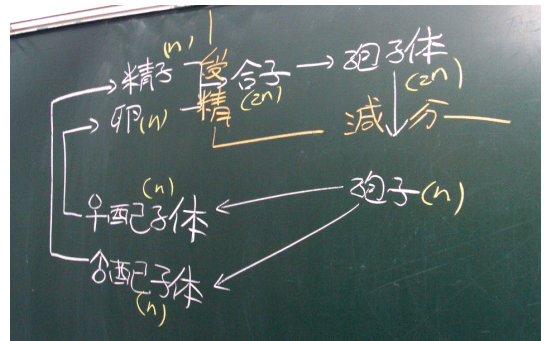 精子(n) 受精 合子(2n) → 孢子体(2n)
卵(n)
減分
孢子(n)
♀配子体(n)
♂配子体(n)